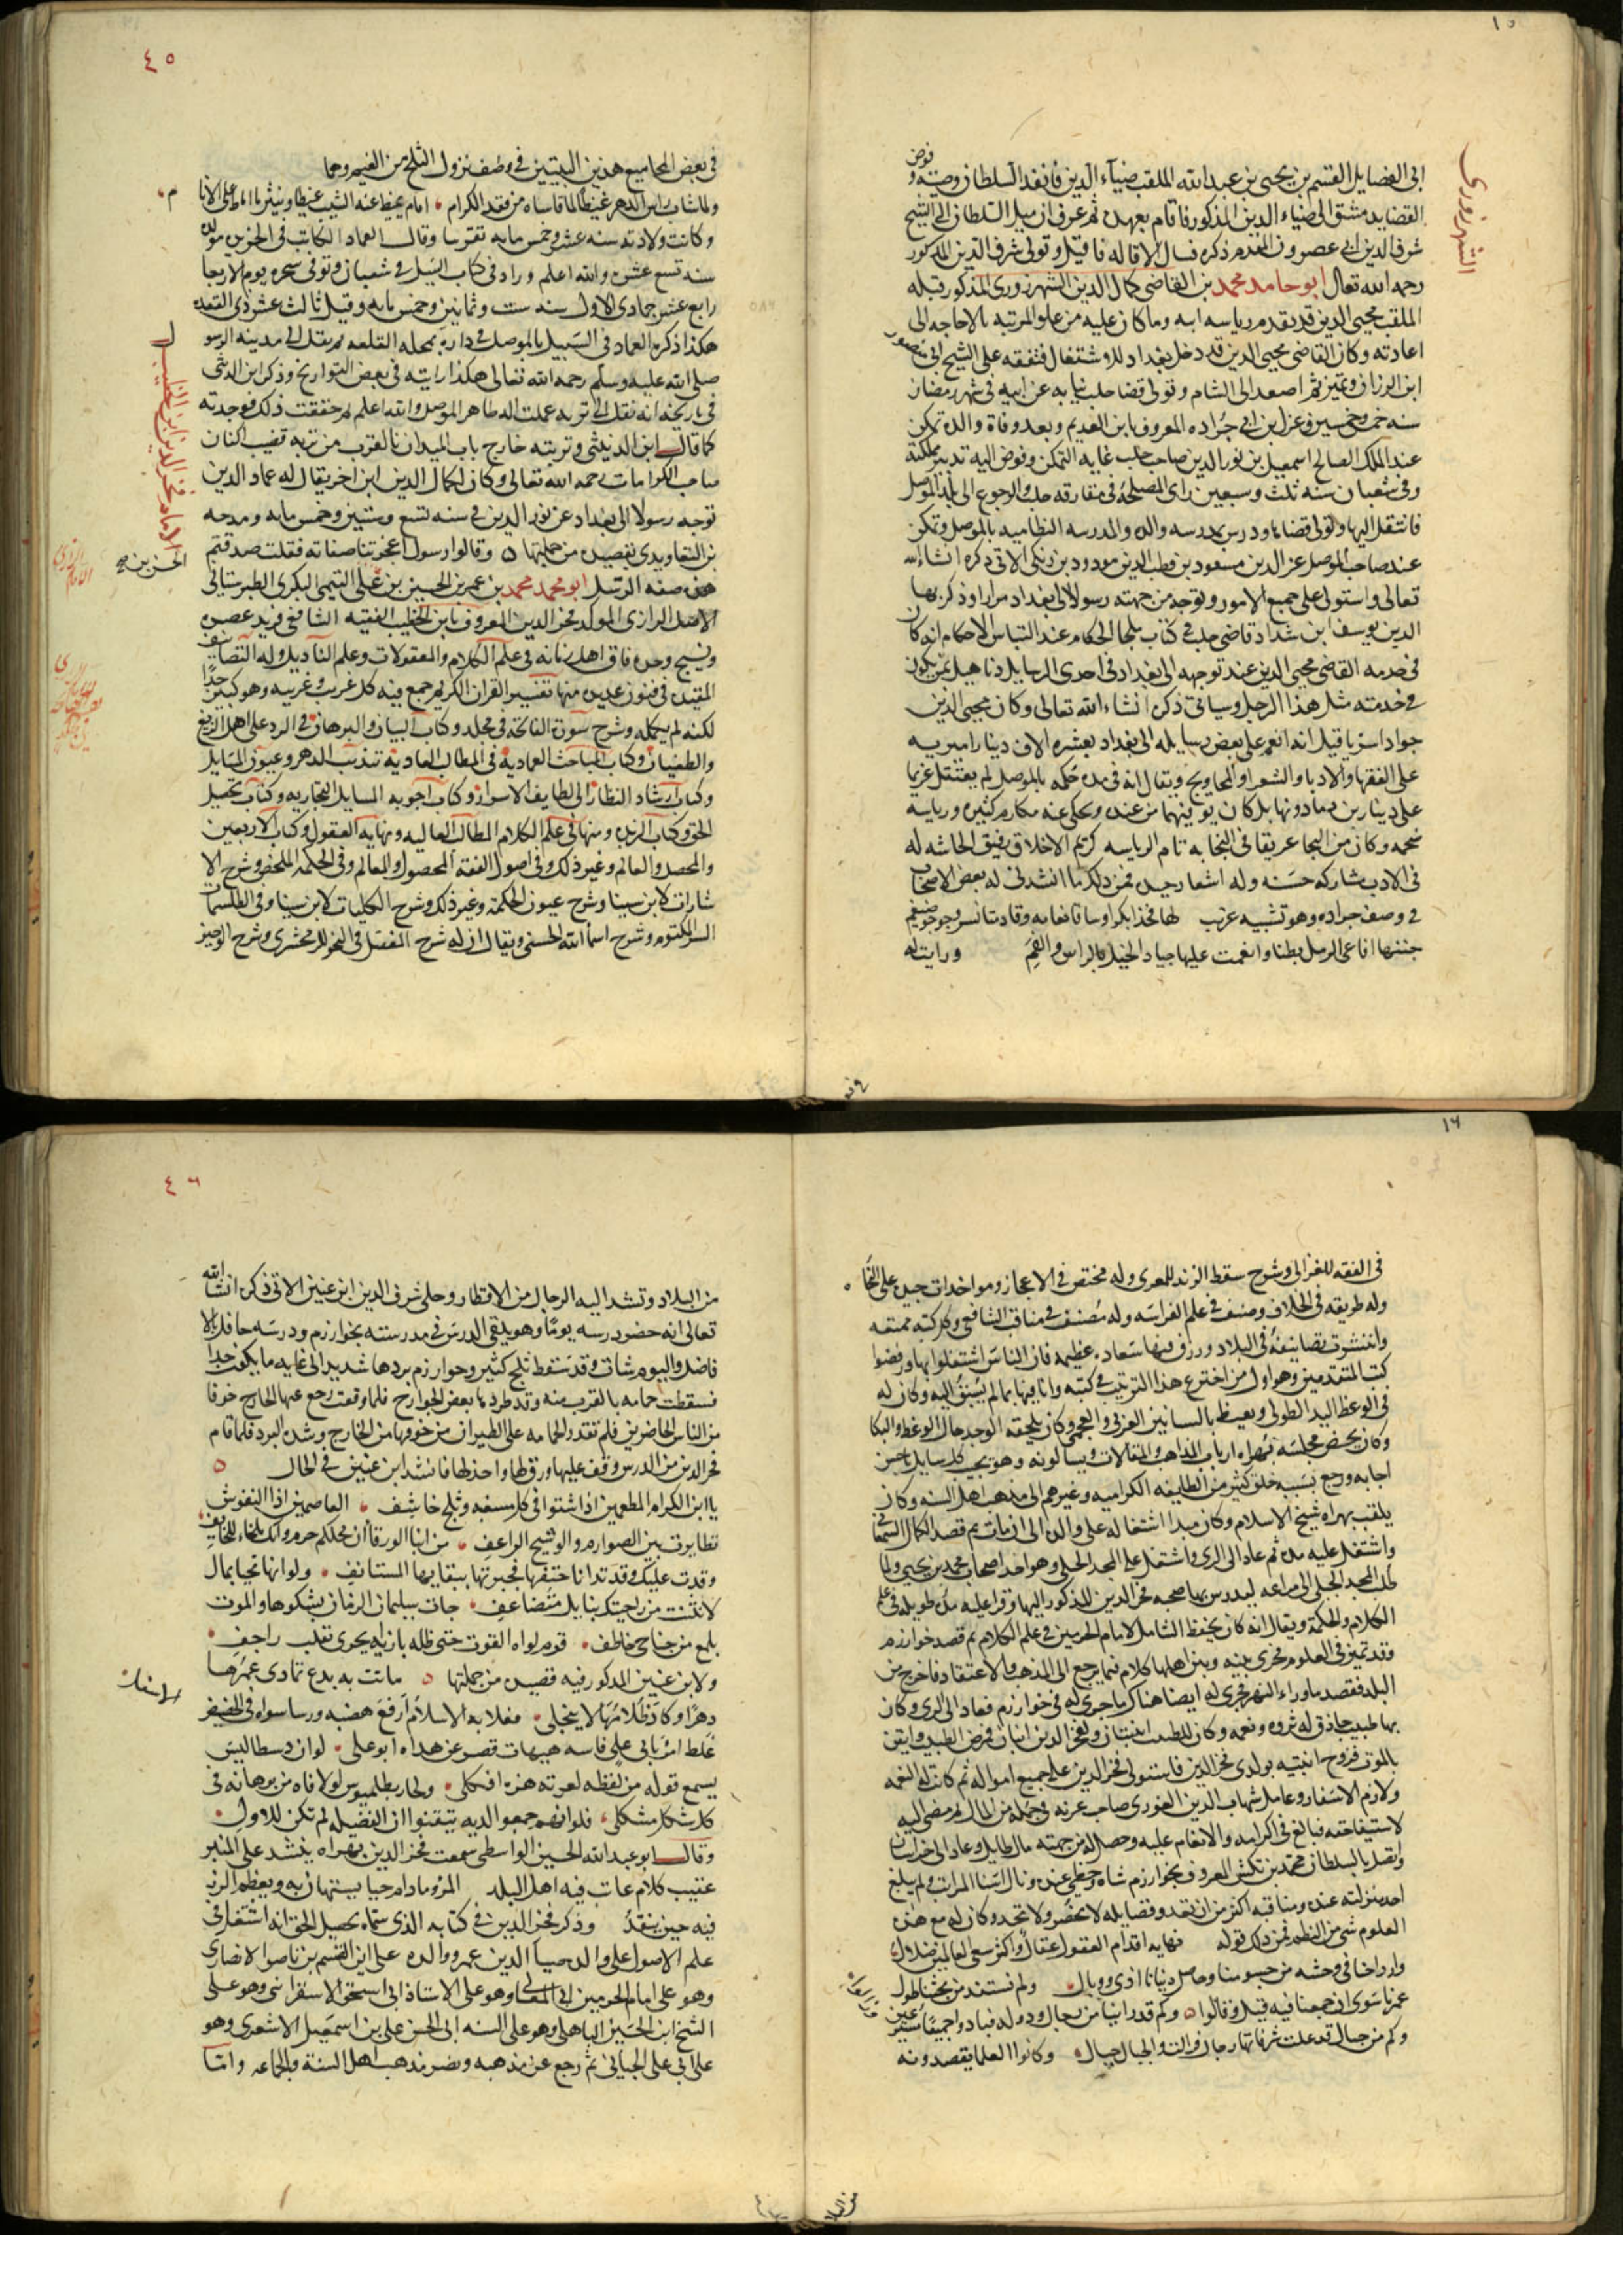 ١٥
الشهرزوري
ابى الفضايل القسم بن يحيى بن عبد الله الملقب ضيآء الدين فانفذ السلطان وصيته وفوض
القضا بدمشق الى ضياء الدين المذكور فاقام بعهده ثم عرف ان ميل السلطان الى الشيخ
شرف الدين ابى عصرون المقدم ذكره فسال الاقاله فاقيل وتولى شرف الدين المذكور
رحمه الله تعالى ابو حامد محمد بن القاضى كمال الدين الشهرزورى المذكور قبله
الملقب محيى الدين قد تقدم رياسه ابيه وما كان عليه من علو المرتبه بالاحاجه الى
اعادته وكان القاضى محيى الدين قد دخل بغداد للاشتغال فتفقه على الشيخ ابى منصور
ابن الرزاز وتميز ثم اصعد الى الشام وتولى قضا حلب نيابه عن ابيه فى شهر رمضان
سنه خمس وخمسين وعزل ابن ابى جراده المعروف بابن العديم وبعد وفاة والده تمكن
عند الملك الصالح اسمعيل بن نور الدين صاحب حلب غايه التمكن وفوض اليه تدبير مملكة
وفى شعبان سنه ثلث وسبعين راى المصلحة فى مفارقه حلب والرجوع الى بلد الموصل
فانتقل اليها وتولى قضاها ودرس بمدرسه والده والمدرسه النظاميه بالموصل وتمكن
عند صاحب الموصل عز الدين مسعود بن قطب الدين مودود بن زنكى الاتى ذكره انشاء الله
تعالى واستولى على جميع الامور وتوجه من جهته رسولا الى بغداد مرارا وذكر بها
الدين يوسف ابن شداد قاضى حلب فى كتاب ملجا الحكام عند التباس الاحكام انه كان
فى خدمه القاضى محيى الدين عند توجهه الى بغداد فى احدى الرسايل وناهيك بمن يكون
فى خدمته مثل هذا الرجل وسياتى ذكره انشاء الله تعالى وكان محيى الدين
جوادا سريا قيل انه انعم على بعض رسايله الى بغداد بعشره الاف دينار اميريه
على الفقها والادبا والشعرا والمحاويج ويقال انه فى مده حكمه بالموصل لم يعتقل غريما
على دينارين فما دونها بل كان يوفيهما من عنده ويحكى عنه مكارم كثيره ورياسه
ضخمه وكان من النجبا عريقا فى النجابه تام الرياسه كريم الاخلاق رقيق الحاشيه له
فى الادب مشاركه حسنه وله اشعار جيده فمن ذلك ما انشدنى له بعض الاصحاب
فى وصف جراده وهو تشبيه غريب لها فخذا بكر وساقا نعامه وقادمتا نسر وجوجو ضيغم
حبتها افاعى الرمل بطنا وانعمت عليها جياد الخيل بالراس والفم ورايت له
فى بعض
٤٥
فى بعض المجاميع هذين البيتين فى وصف نزول الثلج من الغيم وهما
ولما شاب راس الدهر غيظا لما قاساه من فقد الكرام اقام يميط عنه الشيب غيظا وينثر ما اماط على الانام
وكانت ولادته سنه عشر وخمس مايه تقريبا وقال العماد الكاتب فى الخريده مولده
سنه تسع عشره والله اعلم وزاد فى كتاب السيل فى شعبان وتوفى سحره يوم الاربعا
رابع عشر جمادى الاول سنه ست وثمانين وخمس مايه وقيل ثالث عشر ذى القعده
هكذا ذكره العماد فى السبيل بالموصل فى داره بمحله القلعه ثم نقل الى مدينه الرسول
صلى الله عليه وسلم رحمه الله تعالى هكذا رايته فى بعض التواريخ وذكر ابن الدبيثى
فى تاريخه انه نقل الى تربه عملت له ظاهر الموصل والله اعلم ثم حققت ذلك فوجدته
كما قال ابن الدبيثى وتربته خارج باب الميدان بالقرب من تربه قضيب البان
صاحب الكرامات رحمه الله تعالى وكان لكمال الدين ابن اخر يقال له عماد الدين
توجه رسولا الى بغداد عن نور الدين فى سنه تسع وستين وخمس مايه ومدحه
بن التعاويذى بقصيده من جملتها وقالوا رسول اعجزتنا صفاته فقلت صدقتم
هذه صفه الرسل ابو محمد محمد بن عمر بن الحسين بن على التيمى البكرى الطبرستانى
الاصل الرازى المولد فخر الدين المعروف بابن الخطيب الفقيه الشافعى فريد عصره
ونسيج وحده فاق اهل زمانه فى علم الكلام والمعقولات وعلم الاوايل وله التصانيف
المفيده فى فنون عديده منها تفسير القران الكريم جمع فيه كل غريب وغريبه وهو كبير جدا
لكنه لم يكمله وشرح سورة الفاتحة فى مجلد وكتاب البيان والبرهان فى الرد على اهل الزيغ
والطغيان وكتاب المباحث العمادية فى المطالب المعادية تهذيب الدهر وعيون المسايل
وكتاب ارشاد النظار الى لطايف الاسرار وكتاب اجوبه المسايل النجاريه وكتاب تحصيل
الحق وكتاب الزبده ومنها فى علم الكلام المطالب العاليه ونهايه العقول وكتاب الاربعين
والمحصل والمعالم وغير ذلك وفى اصول الفقه المحصول والمعالم وفى الحكمه الملخص وشرح الا
شارات لابن سينا وشرح عيون الحكمة وغير ذلك وشرح الكليات لابن سينا وفى الطلسمات
السر المكتوم وشرح اسما الله الحسنى ويقال ان له شرح المفصل فى النحو للزمخشرى وشرح الوجيز
الامام فخر الدين ابن الخطيب
الحسن بن
الامام الرازى
١٦
فى الفقه للغزالى وشرح سقط الزند للمعرى وله مختصر فى الاعجاز ومواخذات جيده على النحاة
وله طريقه فى الخلاف وصنف فى علم الفراسه وله مصنف فى مناقب الشافعى وكل كتبه ممتعه
وانتشرت تصانيفه فى البلاد ورزق فيها سعاده عظيمه فان الناس اشتغلوا بها ورفضوا
كتب المتقدمين وهو اول من اخترع هذا الترتيب فى كتبه واتا فيها بما لم يسبق اليه وكان له
فى الوعظ اليد الطولى ويعيظ باللسانين العربى والعجمى وكان يلحقه الوجد حال الوعظ والبكا
وكان يحضر مجلسه بهراه ارباب المذاهب والمقالات ويسالونه وهو يجيب كل سايل باحسن
اجابه ورجع بسببه خلق كثير من الطايفه الكراميه وغيرهم الى مذهب اهل السنه وكان
يلقب بهراه شيخ الاسلام وكان مبدا اشتغاله على والده الى ان مات ثم قصد الكمال السمعانى
واشتغل عليه مده ثم عاد الى الرى واشتغل على المجد الجيلى وهو احد اصحاب محمد بن يحيى ولما
طلب المجد الجيلى الى مراغه ليدرس بها صحبه فخر الدين المذكور اليها وقرا عليه مدة طويله فى علم
الكلام والحكمة ويقال انه كان يحفظ الشامل لامام الحرمين فى علم الكلام ثم قصد خوارزم
وقد تميز فى العلوم فجرى بينه وبين اهلها كلام فيما يرجع الى المذهب والاعتقاد فاخرج من
البلد فقصد ماوراء النهر فجرى له ايضا هناك ما جرى له فى خوارزم فعاد الى الرى وكان
بها طبيب حاذق له ثروه ونعمه وكان للطبيب ابنتان ولفخر الدين ابنان فمرض الطبيب وايقن
بالموت فزوج ابنتيه بولدى فخر الدين فاستولى فخر الدين على جميع امواله ثم كانت له النعمه
ولازم الاسفار وعامل شهاب الدين الغورى صاحب غزنه فى جمله من المال ثم مضى اليه
لاستيفا حقه فبالغ فى اكرامه والانعام عليه وحصل له من جهته مال طايل وعاد الى خراسان
واتصل بالسلطان محمد بن تكش المعروف بخوارزم شاه وحظى عنده ونال اسنا المراتب ولم يبلغ
احد منزلته عنده ومناقبه اكثر من ان تعد وفضايله لا تحصر ولا تحد وكان له مع هذه
العلوم شى من النظم فمن ذلك قوله نهايه اقدام العقول عقال واكثر سعى العالمين ضلال
وارواحنا فى وحشه من جسومنا وحاصل دنيانا اذى ووبال ولم نستفد من بحثنا طول
عمرنا سوى ان جمعنا فيه قيل وقالوا وكم قد راينا من رجال ودوله فبادوا جميعا مسرعين
وكم من جبال قد علت شرفاتها رجال فزالت والجبال جبال وكانوا العلما يقصدونه
من البلاد
٤٦
من البلاد وتشد اليه الرحال من الاقطار وحكى شرف الدين ابن عنين الاتى ذكره انشا الله
تعالى انه حضر درسه يوما وهو يلقى الدرس فى مدرسته بخوارزم ودرسه حافل بالا
فاضل واليوم شات وقد سقط ثلج كثير وخوارزم بردها شديد الى غايه ما يكون جدا
فسقطت حمامه بالقرب منه وقد طردها بعض الجوارح فلما وقعت رجع عنها الجارح خوفا
من الناس الحاضرين فلم تقدر الحمامه على الطيران من خوفها من الجارح وشده البرد فلما قام
فخر الدين من الدرس وقف عليها ورق لها واخذ لها فانشد ابن عنين فى الحال
يا ابن الكرام المطعمين اذا شتوا فى كل مسغبه وثلج خاشف العاصمين اذا النفوس
تطايرت بين الصوارم والوشيج الراعف من انبا الورقا ان محلكم حرم وانك ملجاء للخايف
وفدت عليك وقد تدانا حتفها فحبوتها ببقايها المستانف ولو انها تحبا بمال
لانثنت من راحتيك بنايل متضاعف جات سليمان الزمان بشكوها والموت
يلمع من جناحى خاطف قرم لواه القوت حتى ظله بازايه يجرى بقلب راجف
ولابن عنين المذكور فيه قصيده من جملتها ماتت به بدع تمادى عمرها
دهرا وكاد ظلامها لا ينجلى فعلا به الاسلام ارفع هضبه ورسا سواه فى الحضيض
غلط امرؤ بابى على قاسه هيهات قصر عن هداه ابو على لو ان رسطاليس
يسمع قوله من لفظه لعرته هزه افكلى ولحار بطلميوس لو لاقاه من برهانه فى
كل شكل مشكلى فلو انهم جمعوا لديه يتيقنوا ان الفضيله لم تكن للاول
وقال ابو عبد الله الحسين الواسطى سمعت فخر الدين بهراه ينشد على المنبر
عقيب كلام عاتب فيه اهل البلد المرؤ مادام حيا يستهان به ويعظم الرزء
فيه حين يفقد وذكر فخر الدين فى كتابه الذى سماه تحصيل الحق انه اشتغل فى
علم الاصول على والده ضيا الدين عمر ووالده على ابى القسم بن ناصر الانصارى
وهو على امام الحرمين ابى المعالى وهو على الاستاذ ابى اسحق الاسفراينى وهو على
الشيخ ابى الحسين الباهلى وهو على السنه ابى الحسن على بن اسمعيل الاشعرى وهو
على ابى على الجبائى ثم رجع عن مذهبه ونصر مذهب اهل السنة والجماعه واما